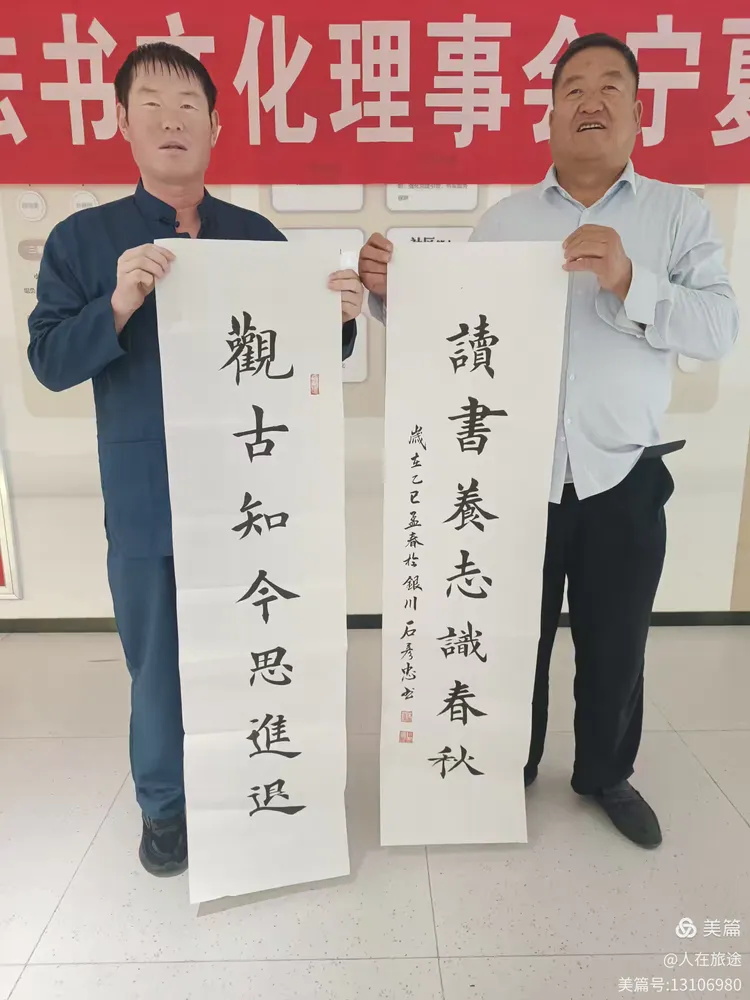 书文化理事会宁夏
社区
觀古知今思進退
讀書養志識春秋
歲在乙巳孟春於銀川 石彥忠书
美篇
@人在旅途
美篇号:13106980